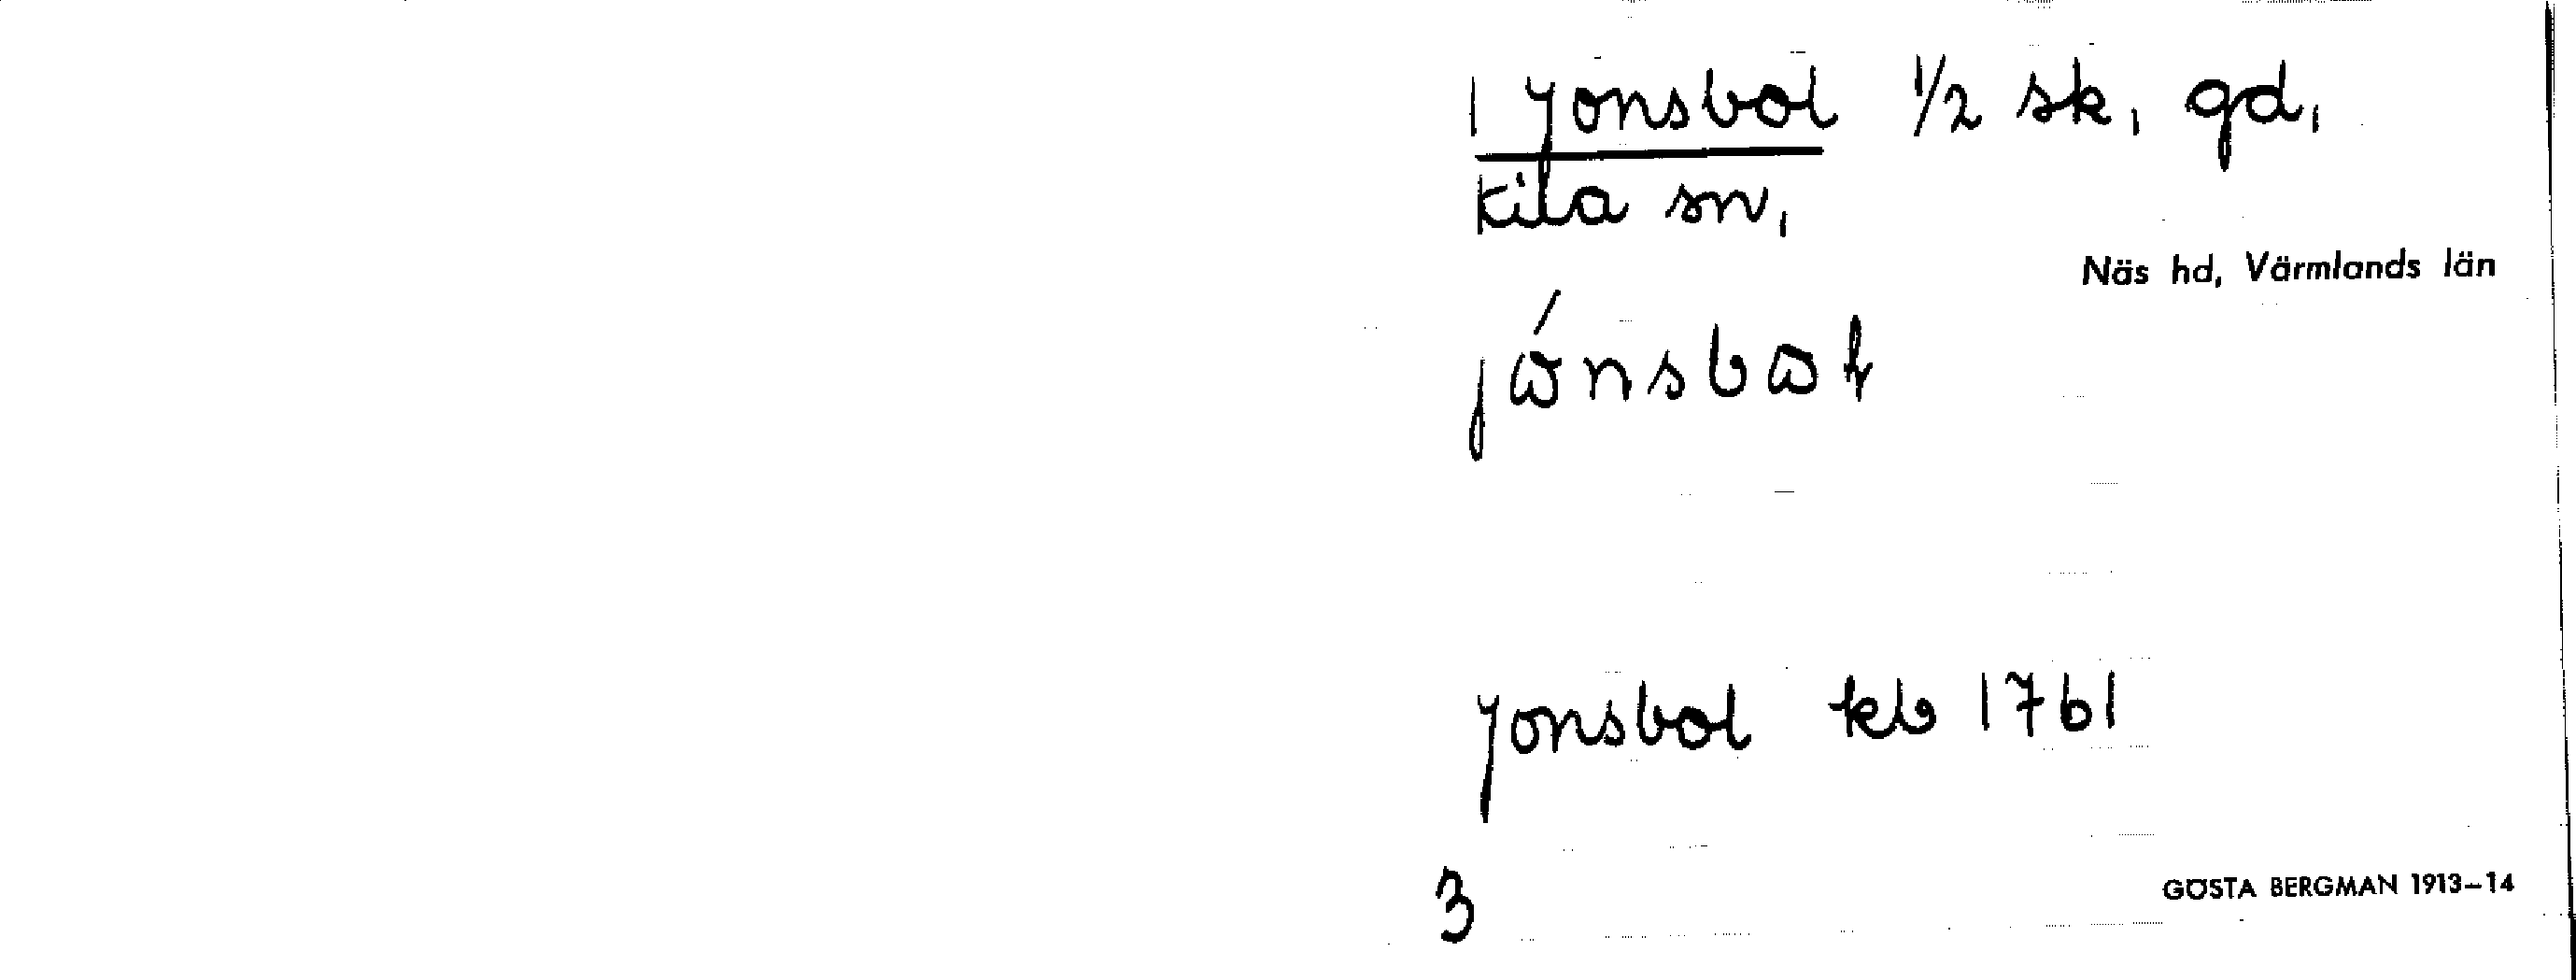 1 Jonsbol 1/2 sk, gd,
Kila sn,
Näs hd, Värmlands län
Jonsbol kb 1761
3
GÖSTA BERGMAN 1913-14